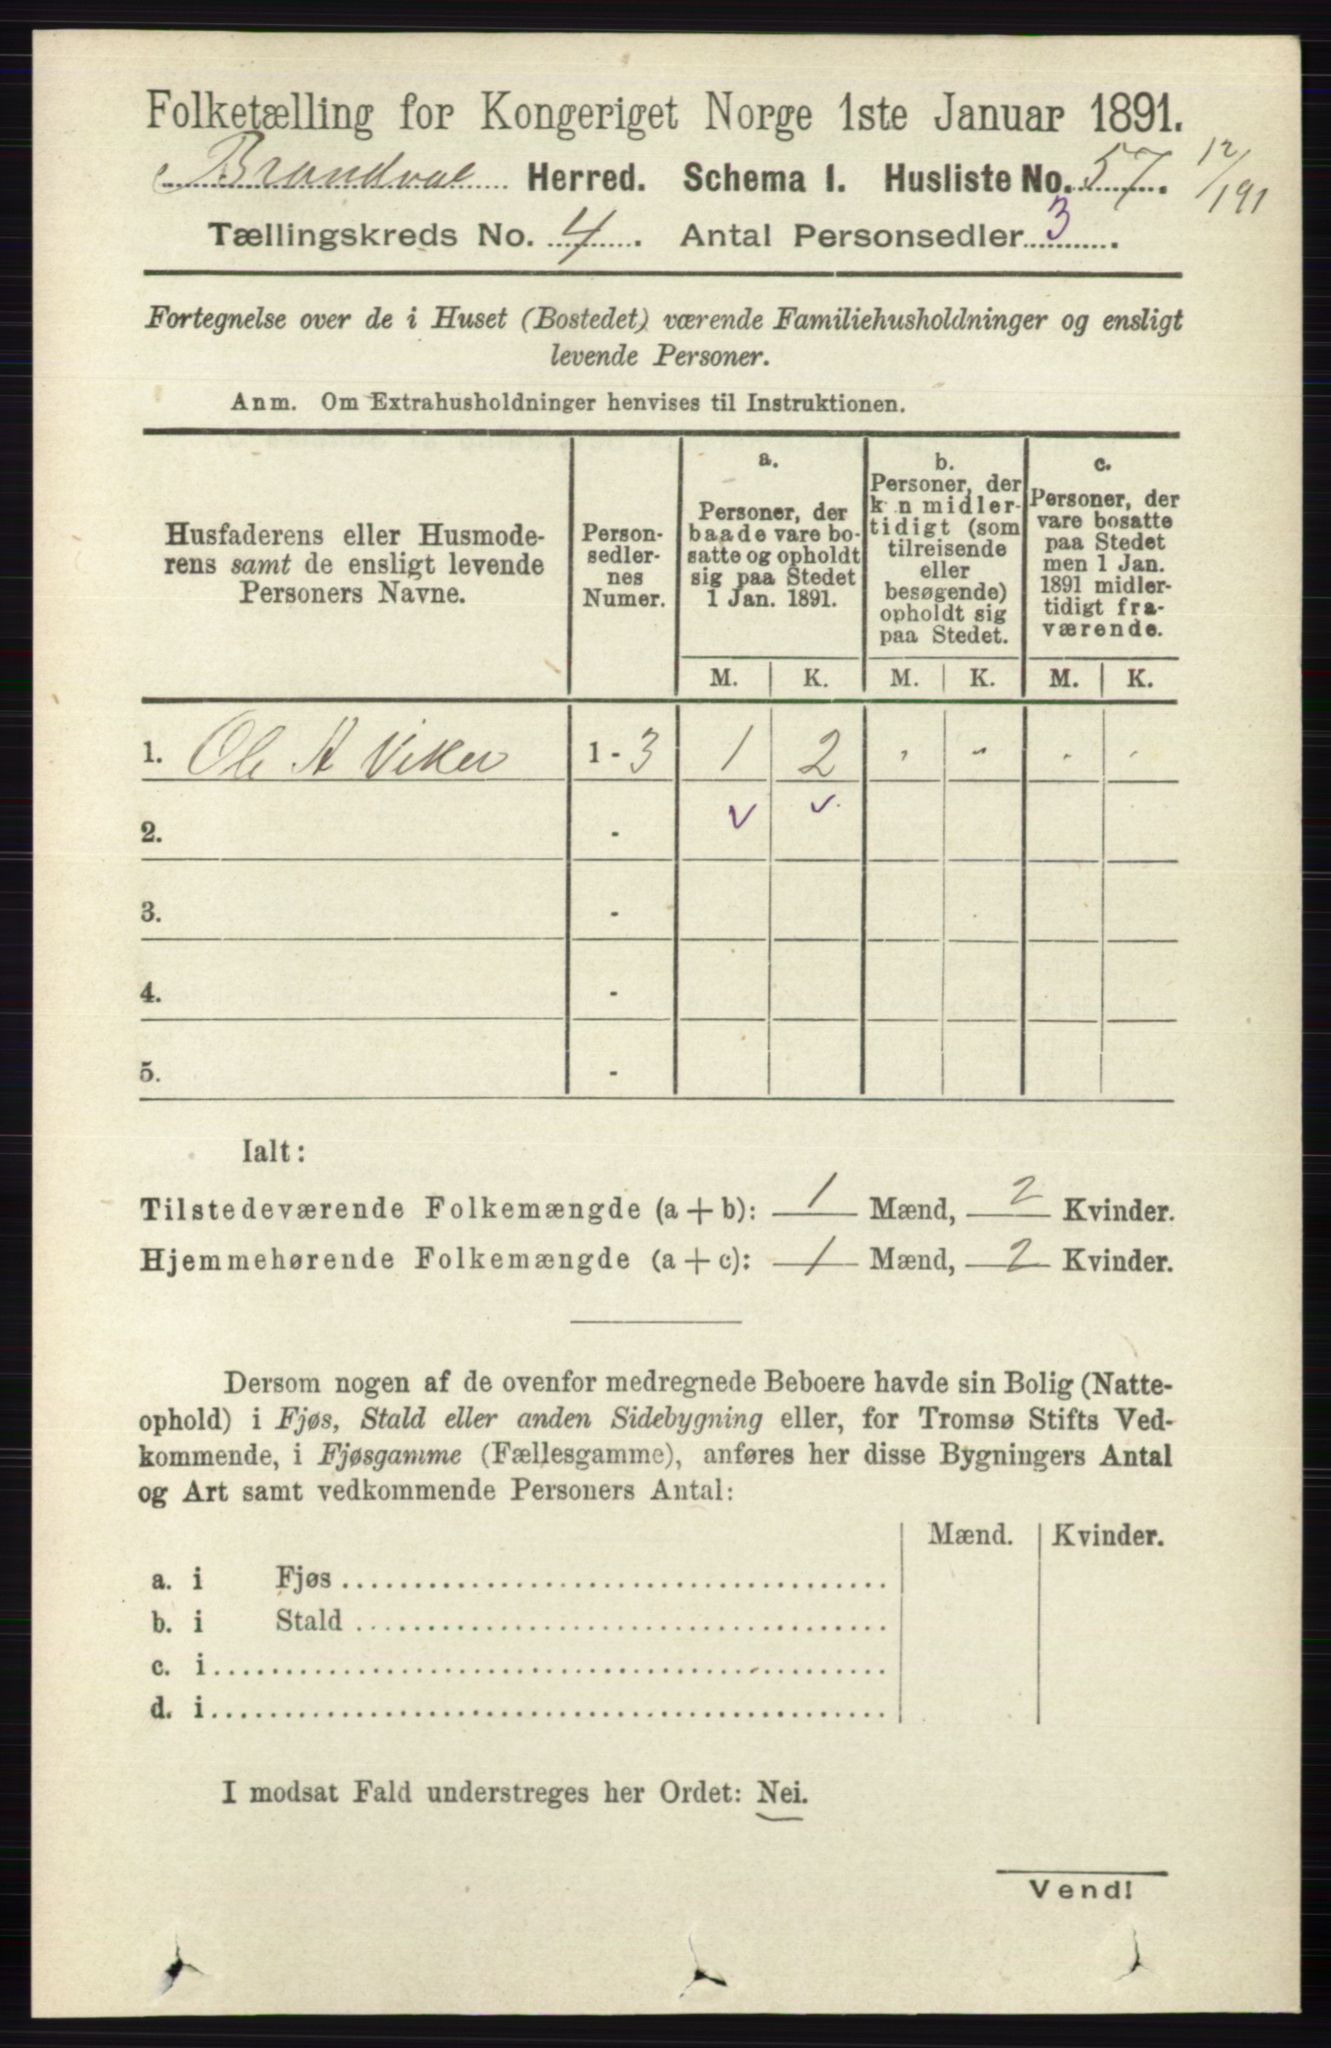 Folketælling for Kongeriget Norge 1ste Januar 1891.
Brandval Herred. Schema I. Husliste No. 57. 12/191
Tællingskreds No. 4. Antal Personsedler 3.
Fortegnelse over de i Huset (Bostedet) værende Familiehusholdninger og ensligt
levende Personer.
Anm. Om Extrahusholdninger henvises til Instruktionen.
Husfaderens eller Husmode-
rens samt de ensligt levende
Personers Navne.
Person-
sedler-
nes
Numer.
a.
Personer, der
baade vare bo-
satte og opholdt
sig paa Stedet
1 Jan. 1891.
b.
Personer, der
k n midler-
tidigt (som
tilreisende
eller
besøgende)
opholdt sig
paa Stedet.
c.
Personer, der
vare bosatte
paa Stedet
men 1 Jan.
1891 midler-
tidigt fra-
værende.
M. K. M. K. M. K.
1. Ole A Viker 1 - 3 1 2 - - - -
2. - v v
3. -
4. -
5. -
Ialt:
Tilstedeværende Folkemængde (a + b): 1 Mænd, 2 Kvinder.
Hjemmehørende Folkemængde (a + c): 1 Mænd, 2 Kvinder.
Dersom nogen af de ovenfor medregnede Beboere havde sin Bolig (Natte-
ophold) i Fjøs, Stald eller anden Sidebygning eller, for Tromsø Stifts Ved-
kommende, i Fjøsgamme (Fællesgamme), anføres her disse Bygningers Antal
og Art samt vedkommende Personers Antal:
Mænd. Kvinder.
a. i Fjøs
b. i Stald
c. i
d. i
I modsat Fald understreges her Ordet: Nei.
Vend!